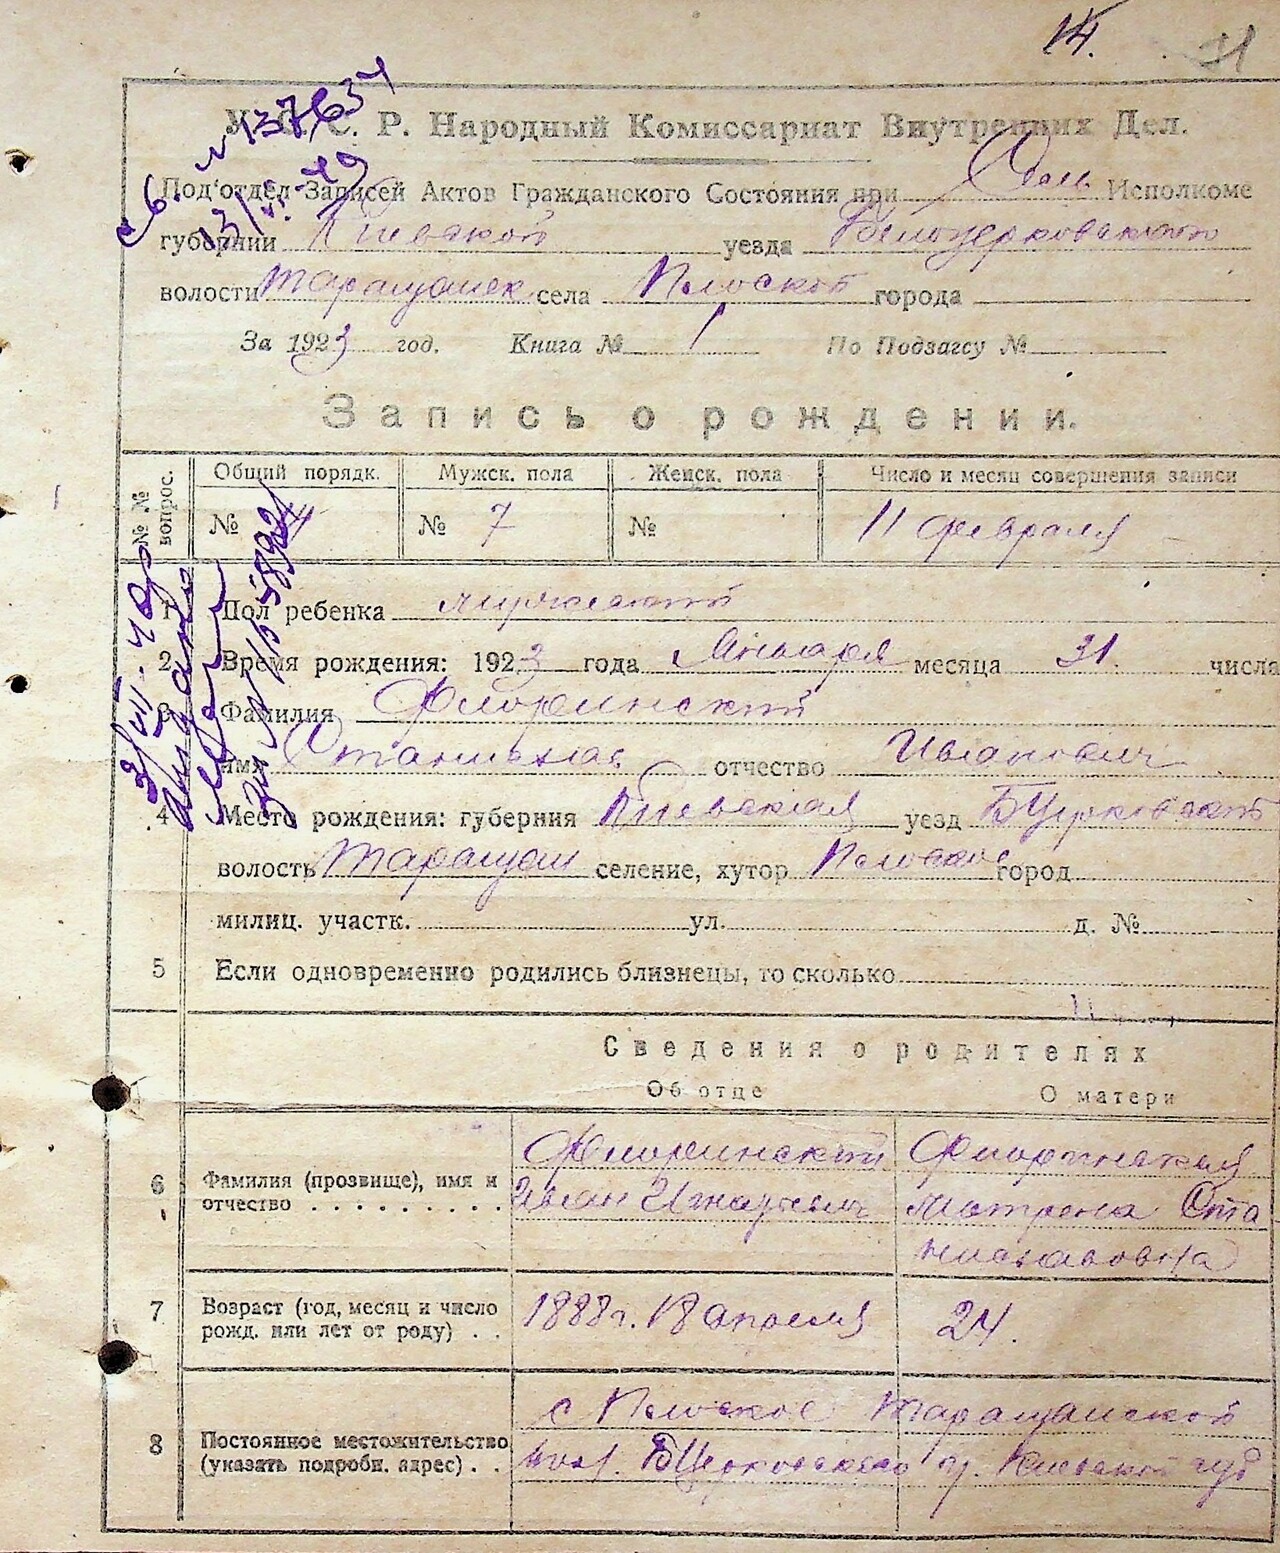 14. 31
У. С. С. Р. Народный Комиссариат Внутренних Дел.
№ 137637
Под'отдел Записей Актов Гражданского Состояния при Сель Исполкоме
губернии Киевской уезда Белоцерковского
волости Таращанск села Плоской города
За 1923 год. Книга № 1 По Подзагсу №
Запись о рождении.
№№ вопрос. Общий порядк. Мужск. пола Женск. пола Число и месяц совершения записи
№ № 7 № 11 февраля
1 Пол ребенка мужской
2 Время рождения: 1923 года Января месяца 31. числа
3 Фамилия Флоринский
имя Станислав отчество Иванович
4 Место рождения: губерния Киевская уезд БЦерковский
волость Таращан селение, хутор Плоское город
милиц. участк. ул. д. №
5 Если одновременно родились близнецы, то сколько
Сведения о родителях
Об отце О матери
Флоринский Флоринская
6 Фамилия (прозвище), имя и отчество Иван Матрена Ста
ниславовна
7 Возраст (год, месяц и число рожд. или лет от роду) 1888г. 18 апреля 24.
с Плоское Таращанской
8 Постоянное местожительство (указать подробн. адрес) вол. БЦерковского у. Киевской губ